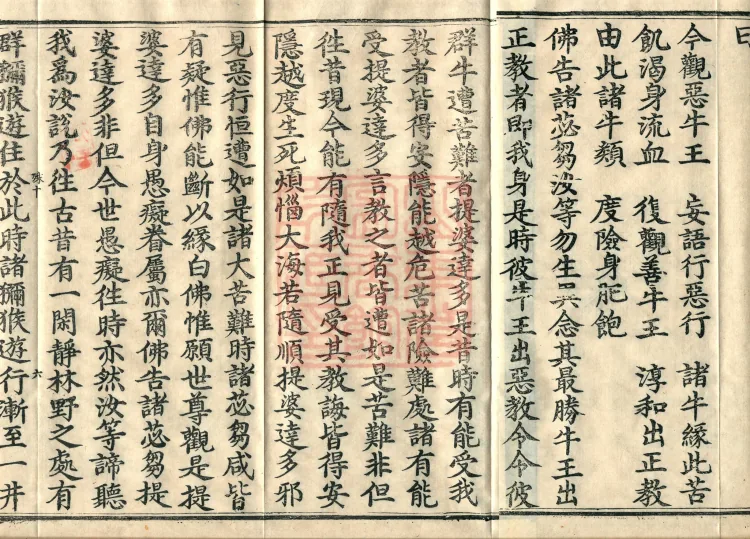 曰
今觀惡牛王　妄語行惡行　諸牛緣此苦
飢渴身流血　復觀善牛王　淳和出正教
由此諸牛類　度險身肥飽
佛告諸苾芻汝等勿生異念其最勝牛王出
正教者即我身是時彼牛王出惡教令令彼
群牛遭苦難者提婆達多是昔時有能受我
教者皆得安隱能越危苦諸險難處諸有能
受提婆達多言教之者皆遭如是苦難非但
徃昔現今能有隨我正見受其教誨皆得安
隱越度生死煩惱大海若隨順提婆達多邪
見惡行恒遭如是諸大苦難時諸苾芻咸皆
有疑惟佛能斷以緣白佛惟願世尊觀是提
婆達多自身愚癡眷屬亦爾佛告諸苾芻提
婆達多非但今世愚癡徃時亦然汝等諦聽
我爲汝說乃徃古昔有一閑靜林野之處有
群獼猴遊住於此時諸獼猴遊行漸至一井
六